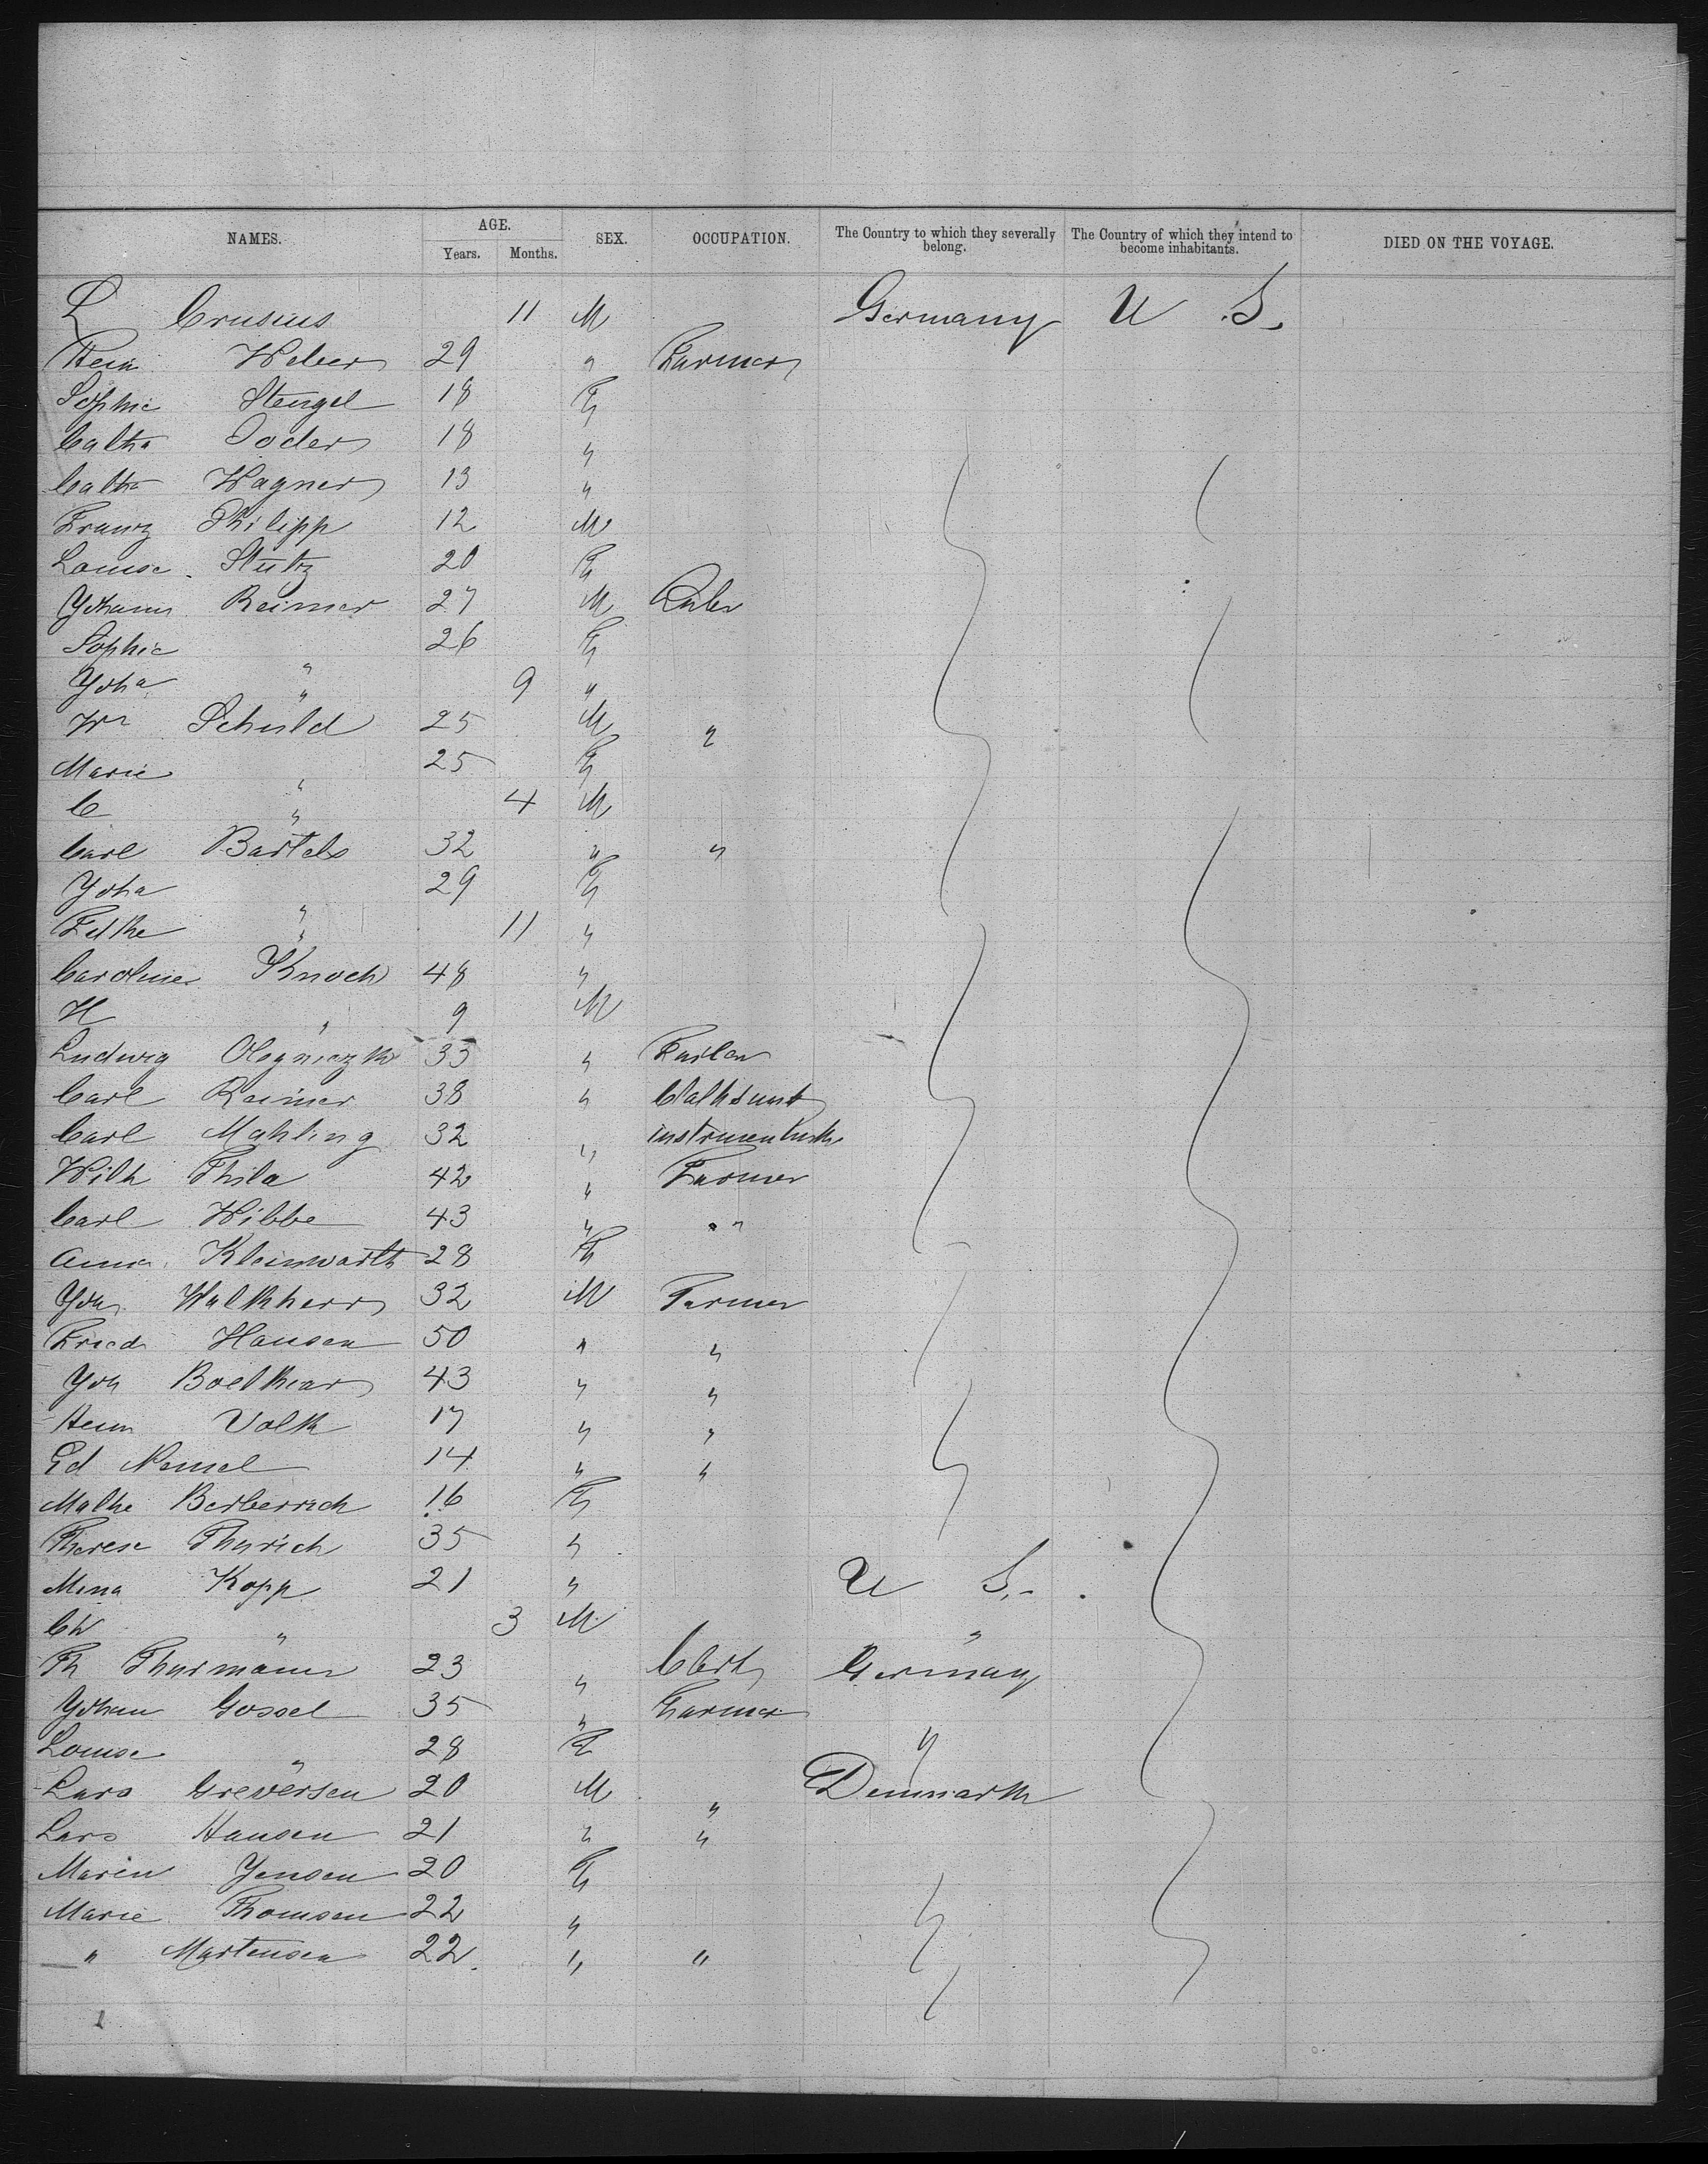 NAMES. AGE. SEX. OCCUPATION. The Country to which they severally belong. The Country of which they intend to become inhabitants. DIED ON THE VOYAGE.
Years. Months.
L Crusius 11 M Germany U. S.
Hein Weber 29 " Farmer
Sophie Stengel 18 F
Catha Yoder 18 "
Catha Wagner 13 "
Franz Philipp 12 M
Louise Stutz 20 F
Johann Reimer 27 M
Sophie " 26 F
Joha " 9 "
Wm Schuld 25 M "
Marie " 25 F
C " 4 M
Carl Bartels 32 " "
Joha " 29 F
" 11 "
Caroline Knoch 48 "
H " 9 M
Ludwig 33 "
Carl Reimer 38 "
Carl Mahling 32 "
Wilh Thila 42 " Farmer
Carl Hibbe 43 " "
Anna Kleinwarth 28 F
Joh Walkherr 32 M Farmer
Fried Hansen 50 " "
Joh 43 " "
Henr Volk 17 " "
Ed 14 " "
Malhe Berberich 16 F
Therese Thurich 35 "
Mina Kopp 21 " U S.
CW " 3 M "
Th Thurmann 23 " Clerk Germany
Johan Gossel 35 " Farmer
Louise " 28 F "
Lars Greversen 20 M " Denmark
Lars Hansen 21 " "
Maren Jensen 20 F
Marie Thomsen 22 "
" Martensen 22. " "